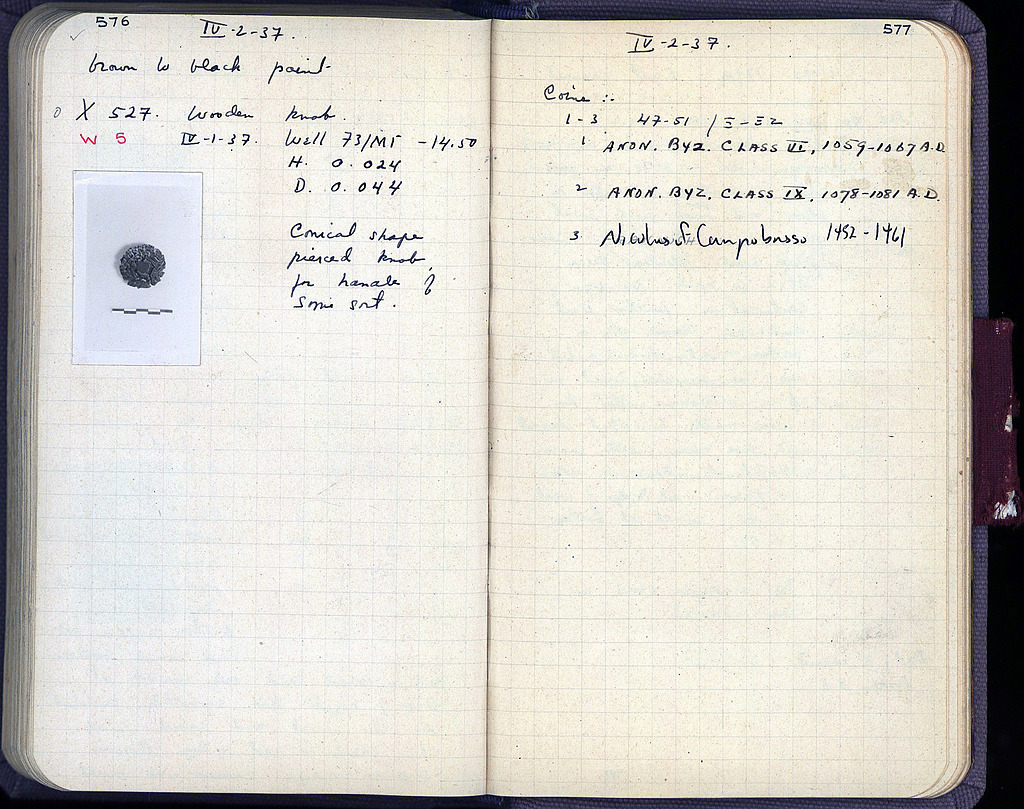 576
IV-2-37.
brown to black paint
X 527. Wooden knob.
W 5 IV-1-37. Well 73/ΜΓ -14.50
H. 0.024
D. 0.044
Conical shape
pierced knob
for handle of
some sort.
577
IV-2-37.
Coins :-
1-3 47-51 / Ξ-ΞΖ
1 ANON. BYZ. CLASS VI, 1059-1067 A.D.
2 ANON. BYZ. CLASS IX, 1078-1081 A.D.
3. Nicolus of Campobasso 1452-1461